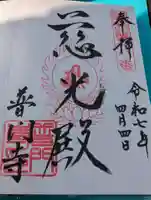 奉拝
慈光殿
令和七年
四月四日
普門寺